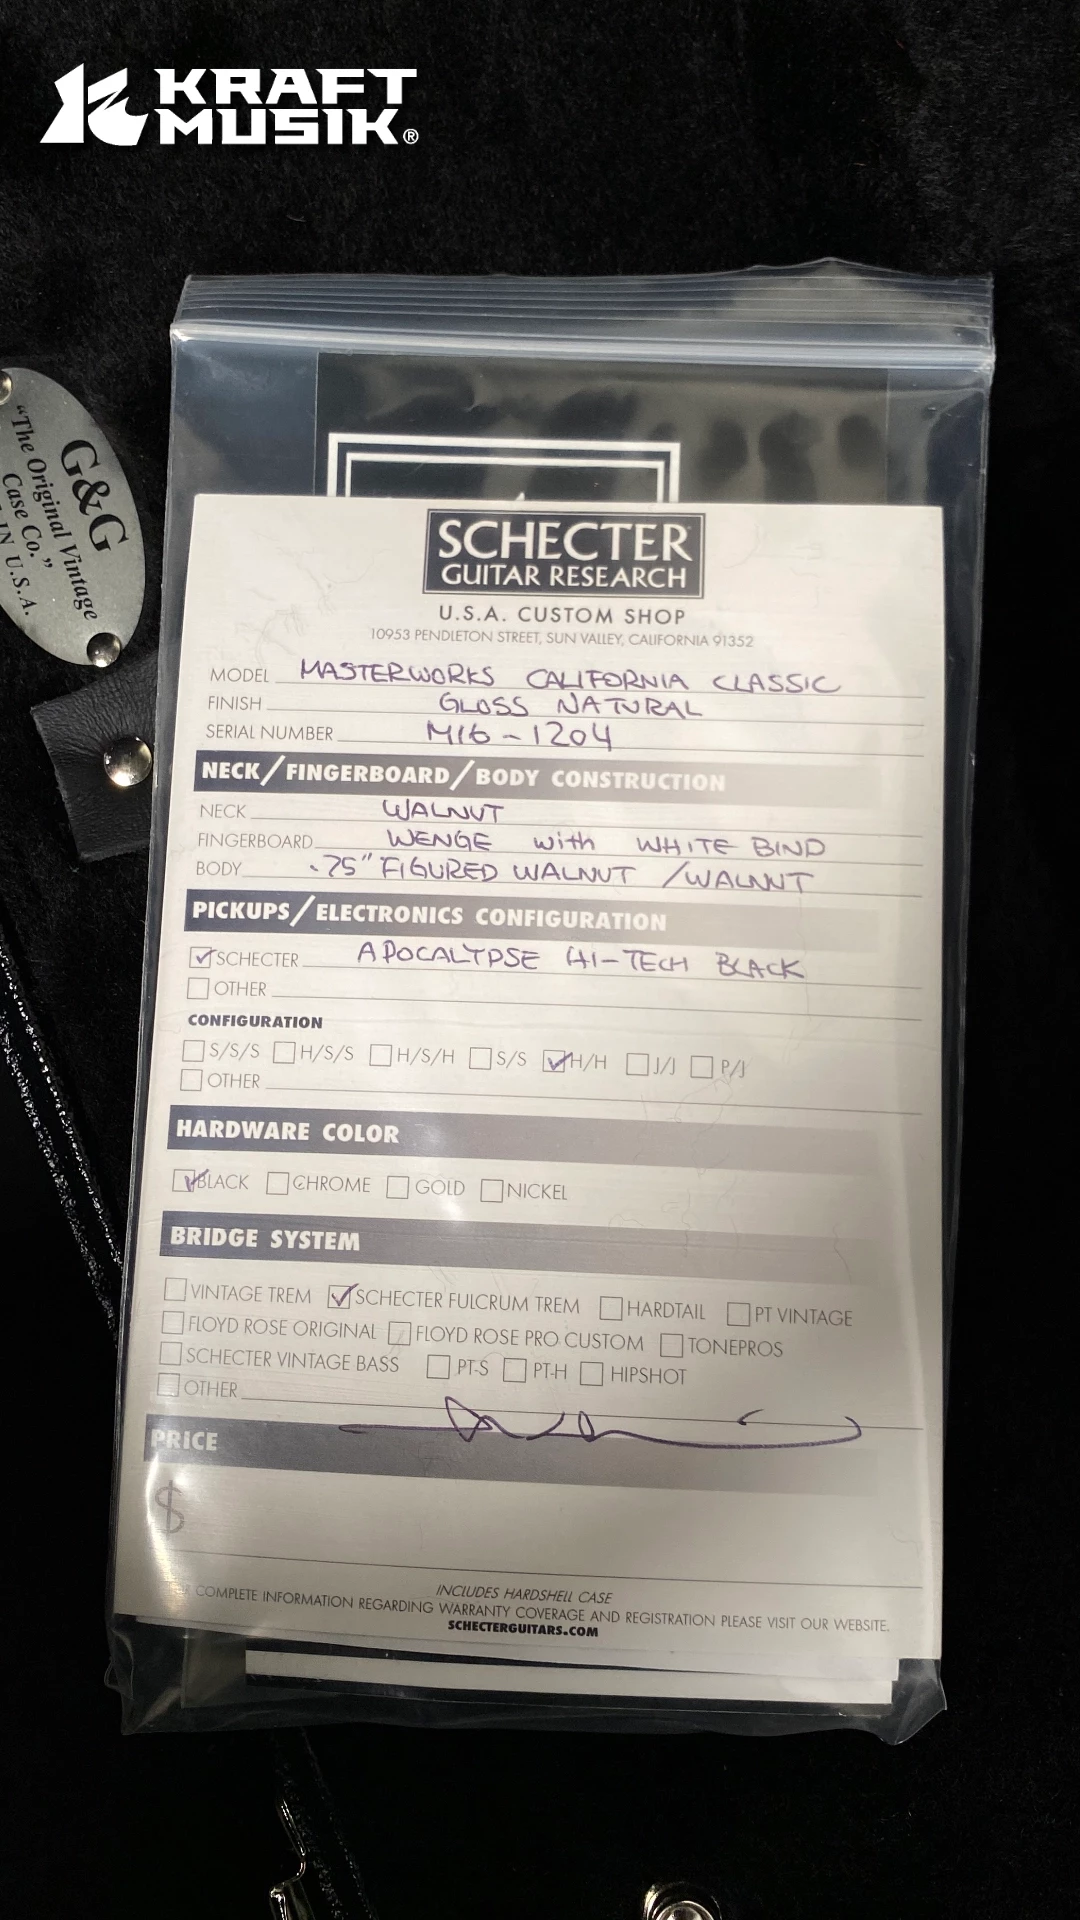 KRAFT
MUSIK®
G&G
"The Original Vintage
Case Co."
IN U.S.A.
SCHECTER
GUITAR RESEARCH
U.S.A. CUSTOM SHOP
10953 PENDLETON STREET, SUN VALLEY, CALIFORNIA 91352
MODEL MASTERWORKS CALIFORNIA CLASSIC
FINISH GLOSS NATURAL
SERIAL NUMBER M16-1204
NECK/FINGERBOARD/BODY CONSTRUCTION
NECK WALNUT
FINGERBOARD WENGE with WHITE BIND
BODY .75" FIGURED WALNUT /WALNUT
PICKUPS/ELECTRONICS CONFIGURATION
SCHECTER APOCALYPSE HI-TECH BLACK
OTHER
CONFIGURATION
S/S/S H/S/S H/S/H S/S H/H J/J P/J
OTHER
HARDWARE COLOR
BLACK CHROME GOLD NICKEL
BRIDGE SYSTEM
VINTAGE TREM SCHECTER FULCRUM TREM HARDTAIL PT VINTAGE
FLOYD ROSE ORIGINAL FLOYD ROSE PRO CUSTOM TONEPROS
SCHECTER VINTAGE BASS PT-S PT-H HIPSHOT
OTHER
PRICE
$
INCLUDES HARDSHELL CASE
COMPLETE INFORMATION REGARDING WARRANTY COVERAGE AND REGISTRATION PLEASE VISIT OUR WEBSITE.
SCHECTERGUITARS.COM